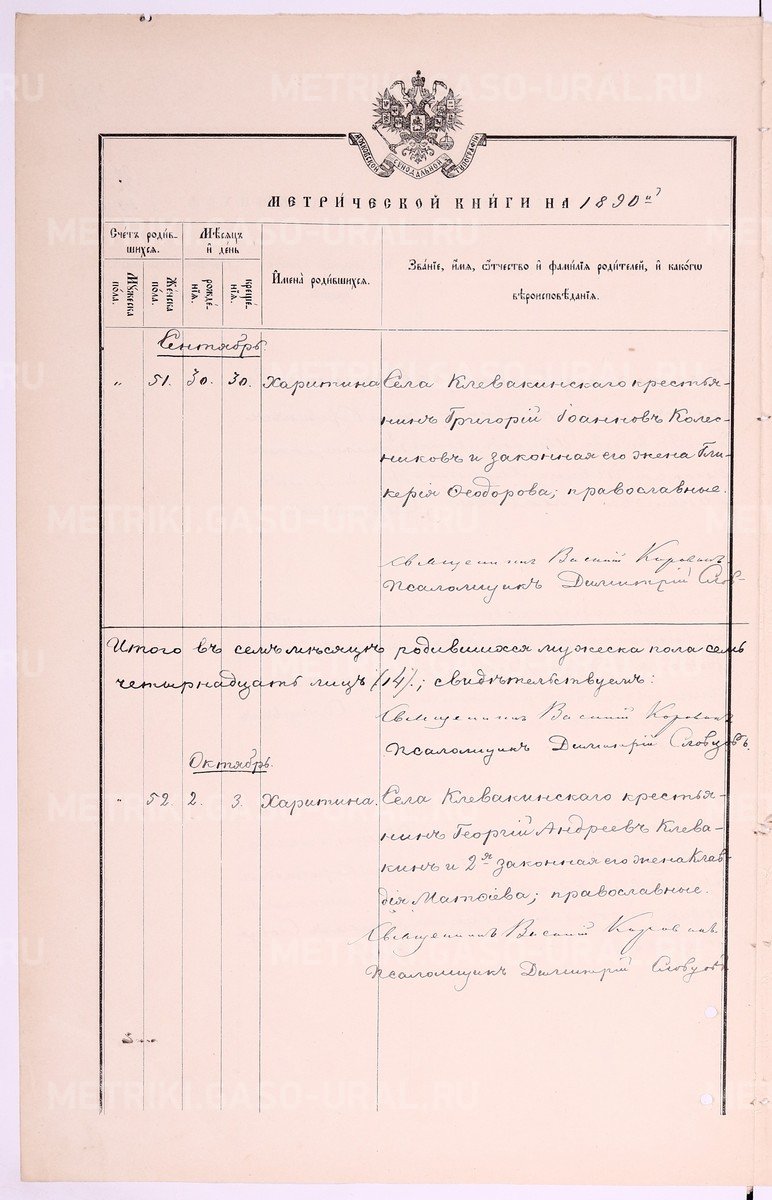 МОСКОВСКОЙ СѴНОДАЛЬНОЙ ТИПОГРАФІИ
МЕТРИ́ЧЕСКОЙ КНИ́ГИ НА 1890й
Сче́тъ роди́в-
шихся.
Мꙋ́жеска
по́ла.
Же́нска
по́ла.
Мѣ́сяцъ
и҆ де́нь
рожде́-
нїѧ.
креще́-
нїѧ.
И҆мена̀ роди́вшихся.
Зва́нїе, и҆́мѧ, ѻ҆́тчество и҆ фами́лїѧ роди́телей, и҆ како́гѡ
вѣроисповѣ́данїѧ.
Сентябрь.
" 51. 30. 30. Харитина Села Клевакинскаго крестья-
нинъ Григорій Іоанновъ Колес-
никовъ и законная его жена Гли-
керія Ѳеодорова; православные.
Священникъ Василій
Псаломщикъ Димитрій Слов-
Итого въ семъ мѣсяцѣ родившихся мужеска пола семь
четырнадцать лицъ (14).; свидѣтельствуемъ:
Священникъ Василій
Псаломщикъ Димитрій Словцовъ.
Октябрь.
" 52. 2. 3. Харитина. Села Клевакинскаго крестья-
нинъ Георгій Андреевъ Клева-
кинъ и 2я законная его жена Клав-
дія Матѳіева; православные.
Священникъ Василій
Псаломщикъ Димитрій Словцовъ
METRIKI.GASO-URAL.RU